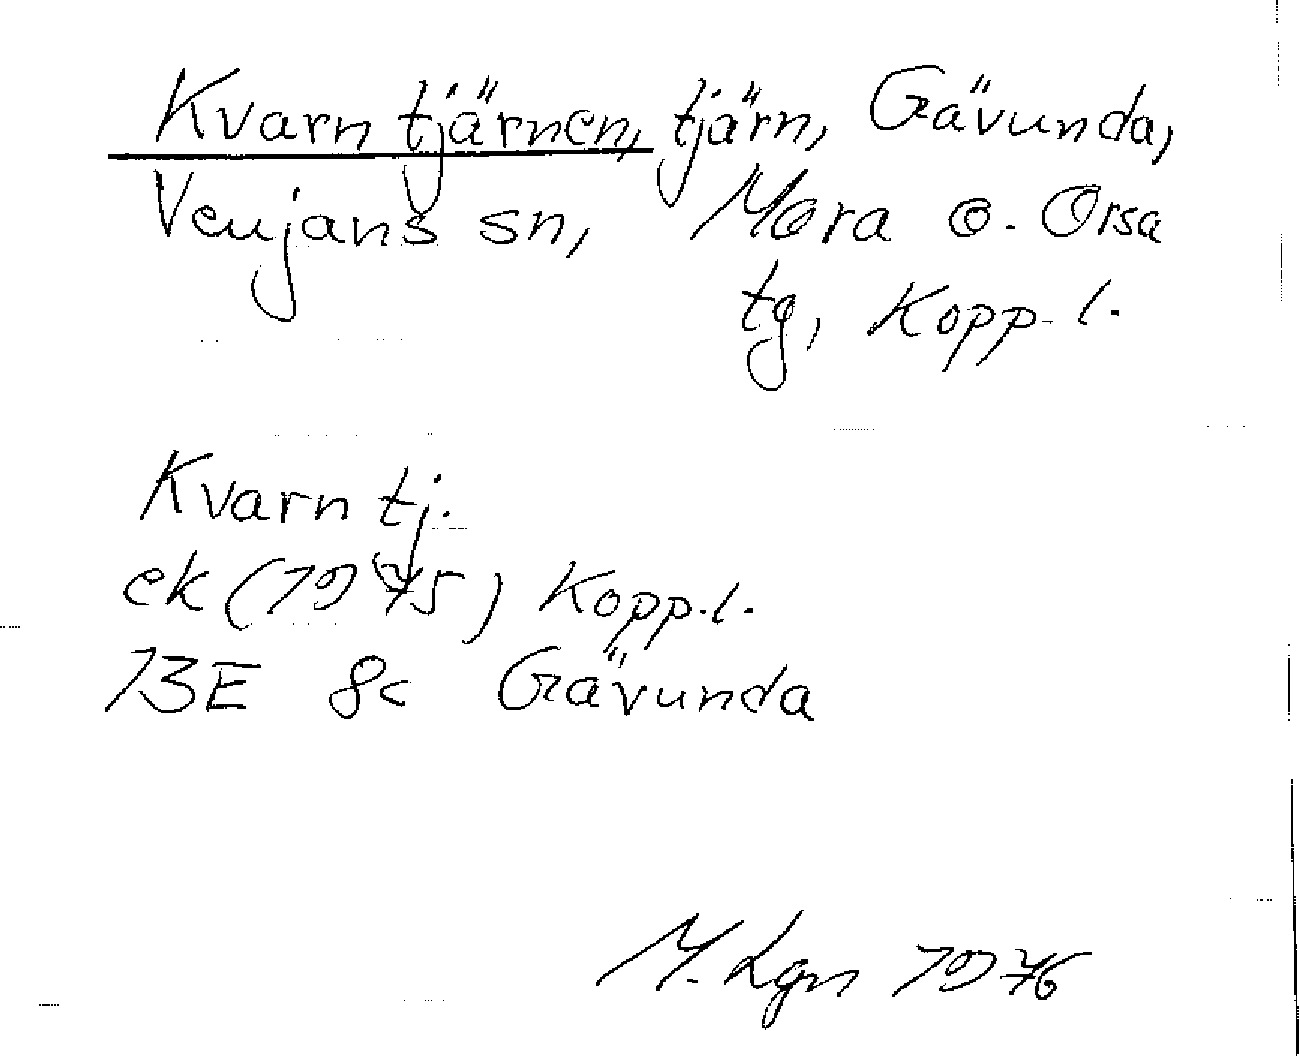 Kvarntjärnen, tjärn, Gävunda,
Venjans sn, Mora o. Orsa
tg, Kopp. l.
Kvarn tj.
ek (1975) Kopp. l.
13E 8c Gävunda
M. Lgn 1976